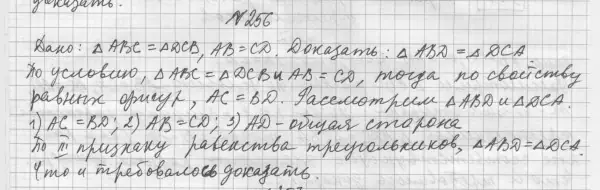 доказать.
№256
Дано: △ABC = △DCB, AB = CD. Доказать: △ABD = △DCA
По условию, △ABC = △DCB и AB = CD, тогда по свойству
равных фигур, AC = BD. Рассмотрим △ABD и △DCA.
1) AC = BD; 2) AB = CD; 3) AD - общая сторона
По III признаку равенства треугольников, △ABD = △DCA.
Что и требовалось доказать.